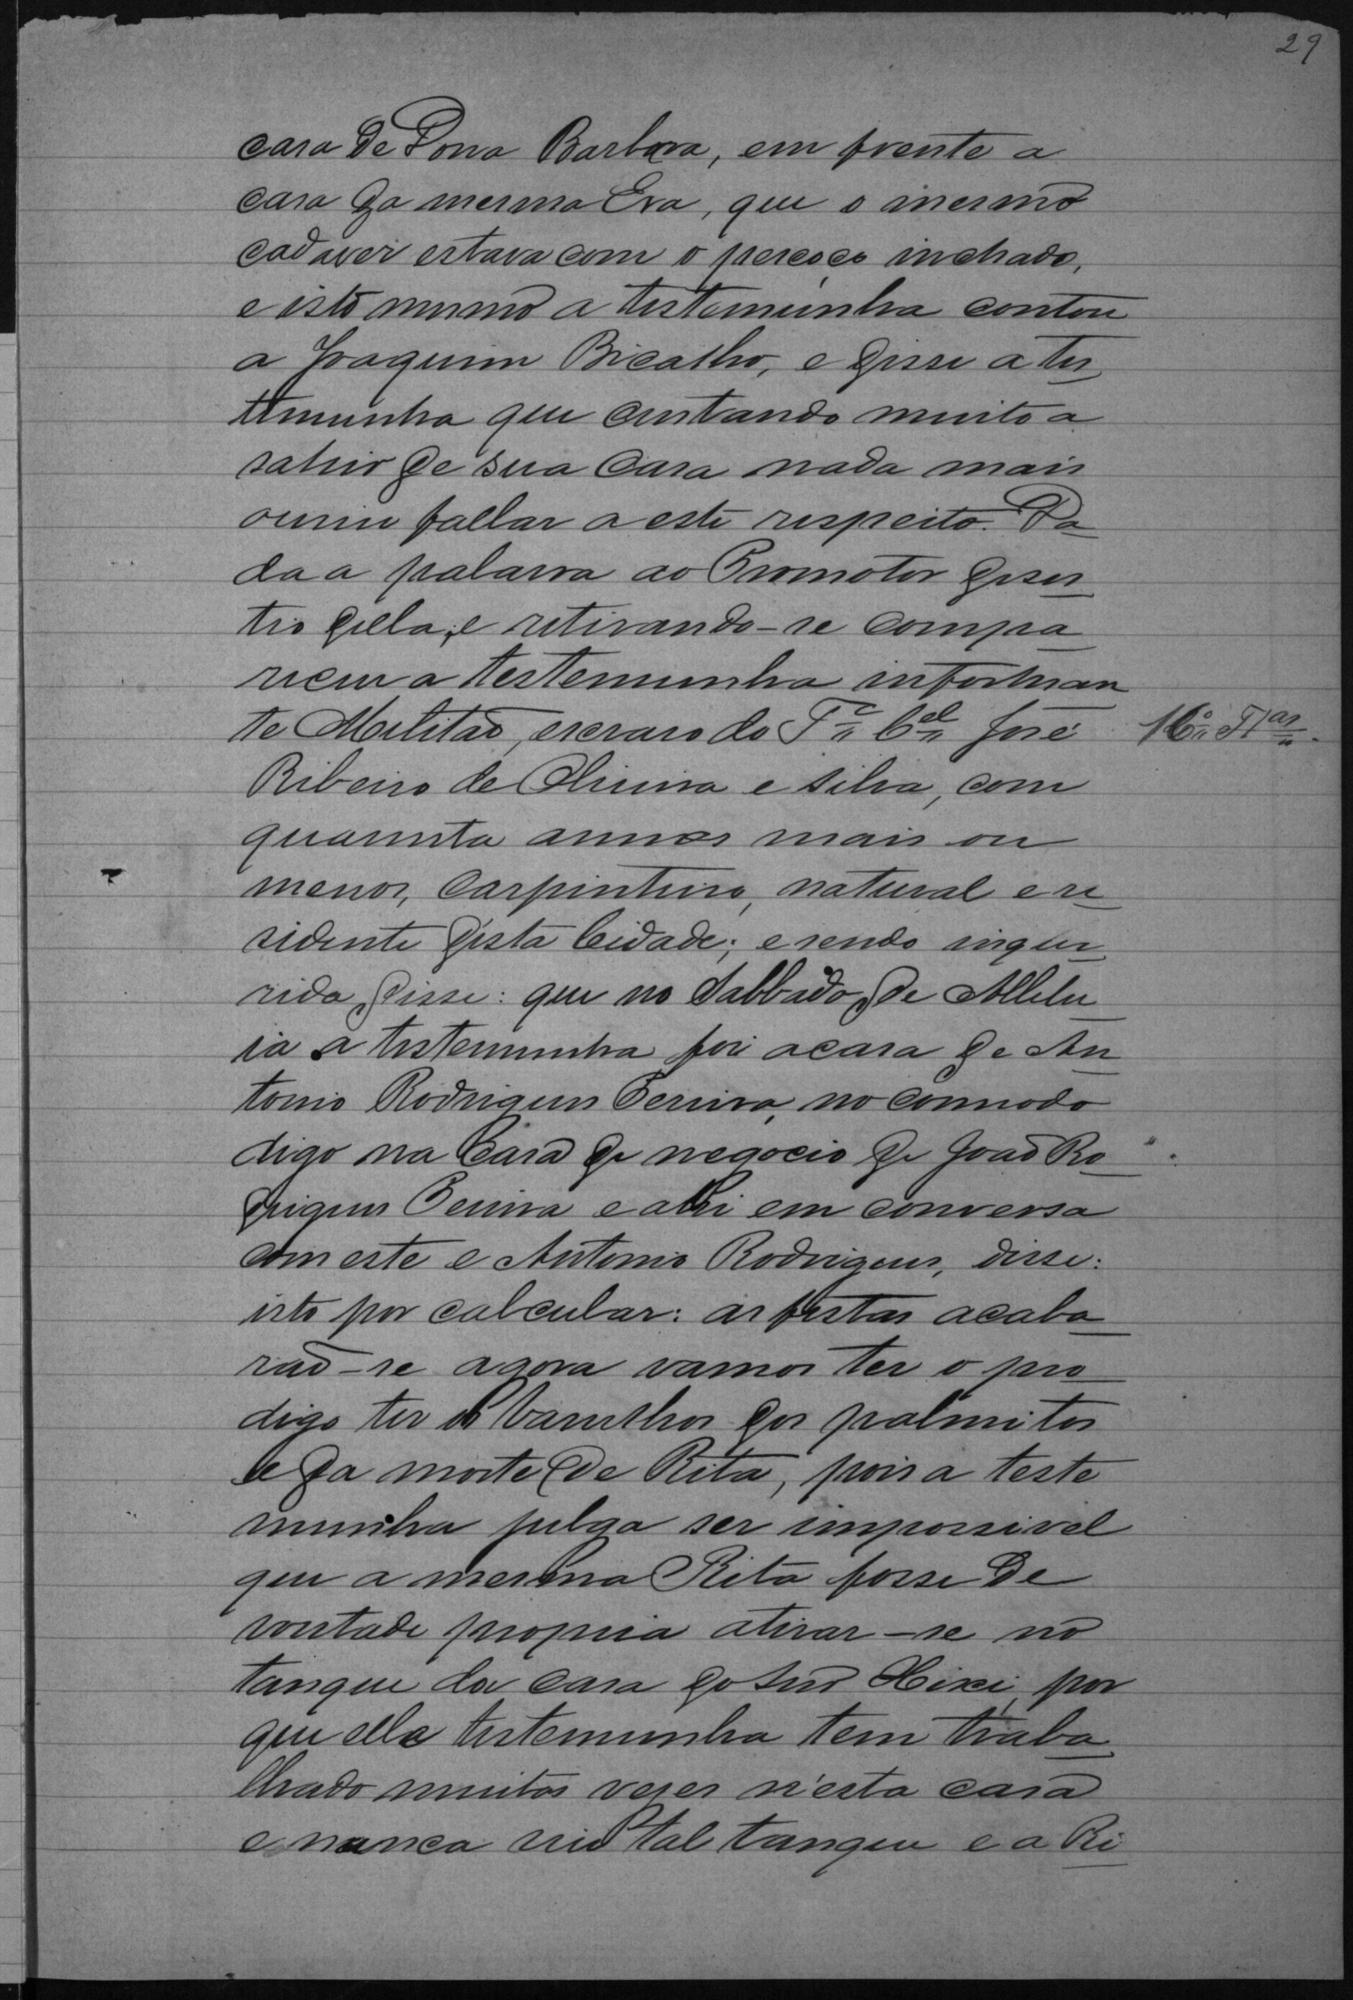 29
casa de Dona Barbara, em frente a
casa da mesma Eva, que o mesmo
cadaver estava com o pescoço inchado,
e isto mesmo a testemunha contou
a Joaquim Bicalho, e disse a tes
temunha que custando muito a
sahir de sua casa nada mais
ouviu fallar a este respeito. Da
da a palavra ao Promotor desis
tio della, e retirando-se compa
receu a testemunha informan
te Militão, escravo do Te. Cel. José
16ª Tas.
Ribeiro de Oliveira e Silva, com
quarenta annos mais ou
menos, carpinteiro, natural e re
sidente desta Cidade; e sendo inque
rida disse: que no Sabbado de Allelu
ia a testemunha foi a casa de An
tonio Rodrigues Pereira, no commodo
digo na Casa de negocio de João Ro
drigues Pereira e alli em conversa
com este e Antonio Rodrigues, disse:
isto por calcular: as festas acaba
rão-se agora vamos ter o pro
digo ter os barulhos dos palmitos
e da morte de Rita, pois a teste
munha julga ser impossivel
que a mesma Rita fosse de
vontade propria atirar-se no
tanque da casa do Snr Xixi, por
que ella testemunha tem traba
lhado muitas vezes n'esta casa
e nunca vio tal tanque e a Ri